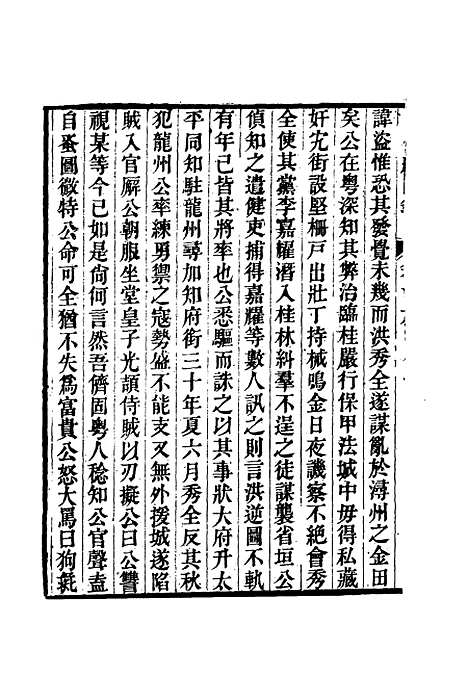 諱盜惟恐其發覺未幾而洪秀全遂謀亂於潯州之金田
矣公在粵深知其弊治臨桂嚴行保甲法城中毋得私藏
奸宄街設堅柵戸出壯丁持械鳴金日夜譏察不絶會秀
全使其黨李嘉耀潛入桂林糾羣不逞之徒謀襲省垣公
偵知之遣健吏捕得嘉耀等數人訊之則言洪逆圖不軌
有年己皆其將率也公悉驅而誅之以其事狀大府升太
平同知駐龍州尋加知府銜三十年夏六月秀全反其秋
犯龍州公率練勇禦之寇勢盛不能支又無外援城遂陷
賊入官廨公朝服坐堂皇子光頡侍賊以刃擬公曰公讐
視某等今已如是尙何言然吾儕固粵人稔知公官聲盍
自蚤圖微特公命可全猶不失爲富貴公怒大罵曰狗彘